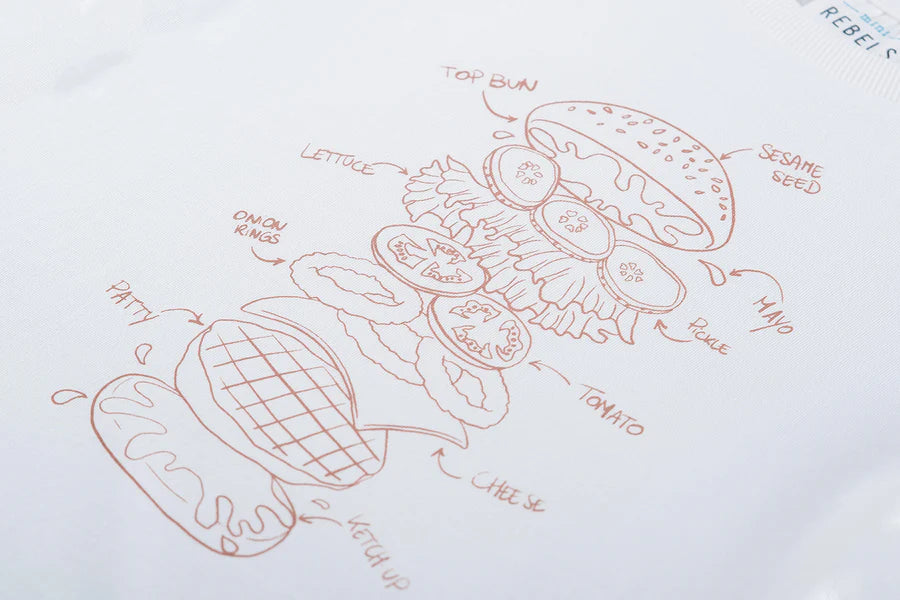 mini
REBELS
TOP BUN
SESAME
SEED
LETTUCE
ONION
RINGS
PATTY
MAYO
PICKLE
TOMATO
CHEESE
KETCHUP